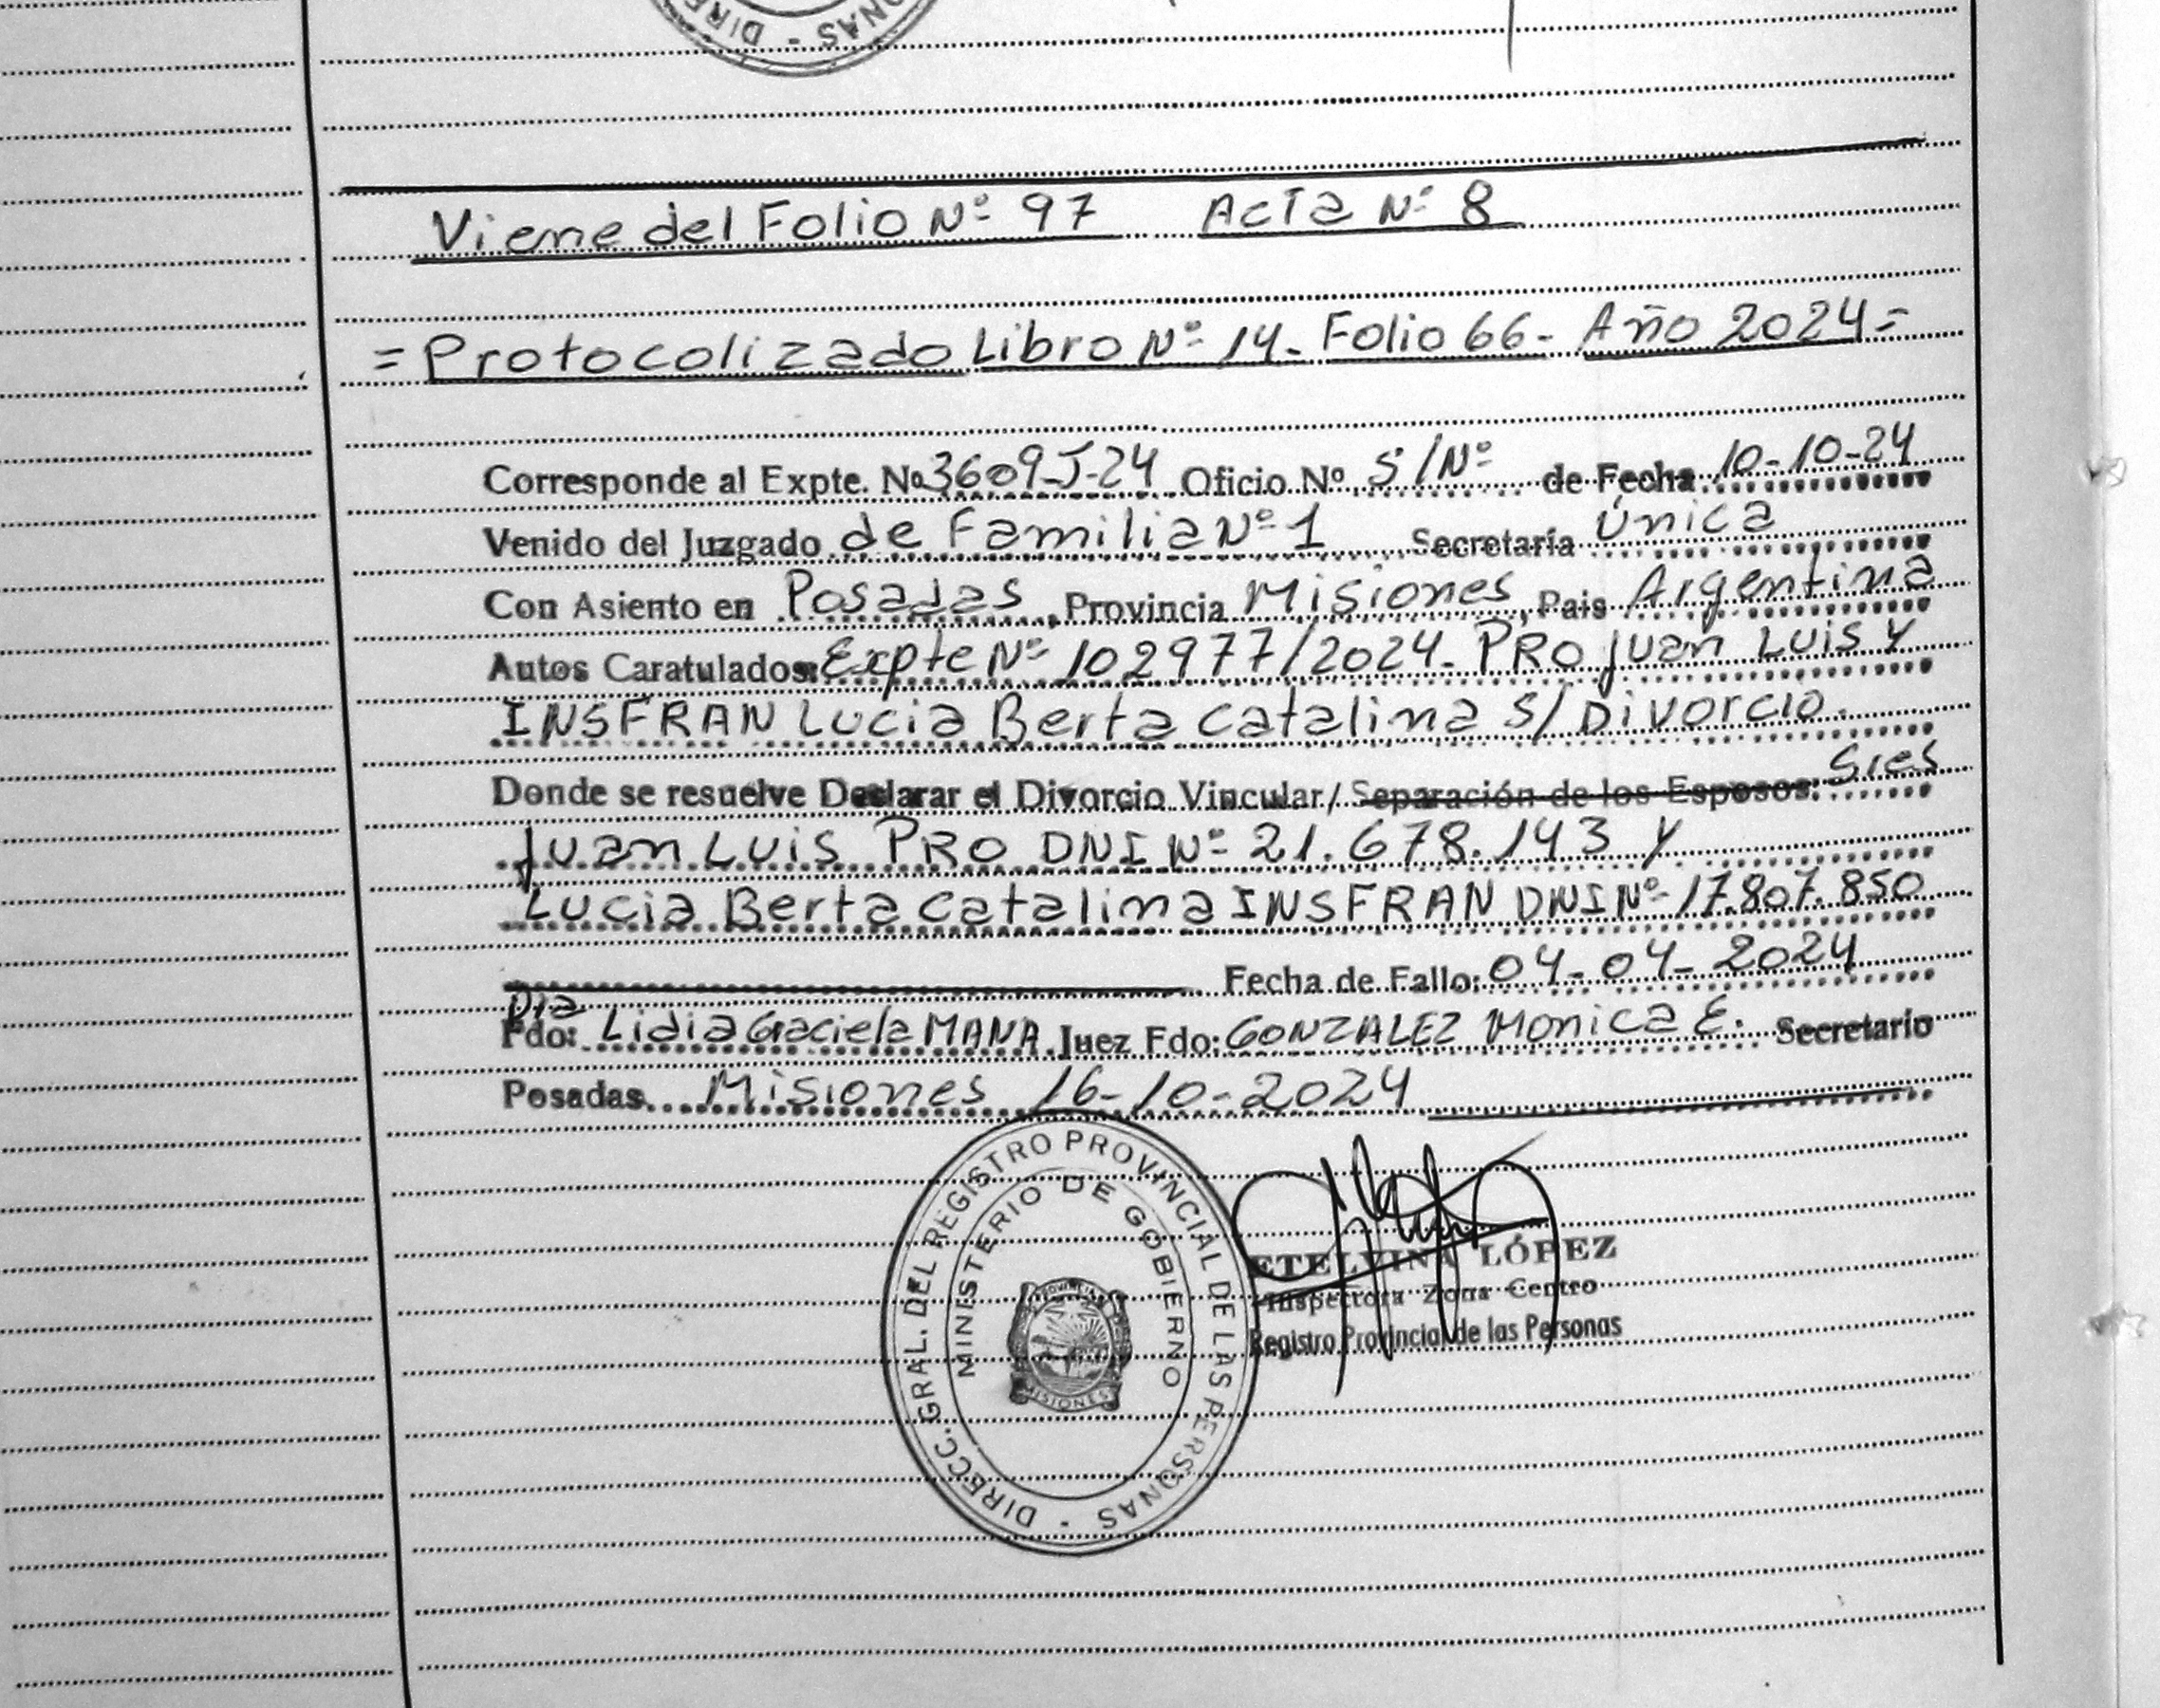 DIRE ONAS -
Viene del Folio Nº 97 Acta Nº 8
= Protocolizado Libro Nº 14 - Folio 66 - Año 2024 =
Corresponde al Expte. Nº 3609-J-24 Oficio Nº S/Nº de Fecha 10-10-24
Venido del Juzgado de Familia Nº 1 Secretaría Única
Con Asiento en Posadas, Provincia Misiones, Pais Argentina
Autos Caratulados: Expte Nº 102977/2024 - PRO Juan Luis y
INSFRAN Lucia Berta Catalina S/ Divorcio.
Donde se resuelve Declarar el Divorcio Vincular/ Separación de los Esposos: Sres
Juan Luis PRO DNI Nº 21.678.143 y
Lucia Berta Catalina INSFRAN DNI Nº 17.807.850
Fecha de Fallo: 04-04-2024
Dra
Fdo: Lidia Graciela MANA Juez Fdo: GONZALEZ Monica E. Secretario
Posadas. Misiones 16-10-2024
DIRECC. GRAL. DEL REGISTRO PROVINCIAL DE LAS PERSONAS -
MINISTERIO DE GOBIERNO
MISIONES
ETELVINA LÓPEZ
Inspectora Zona Centro
Registro Provincial de las Personas